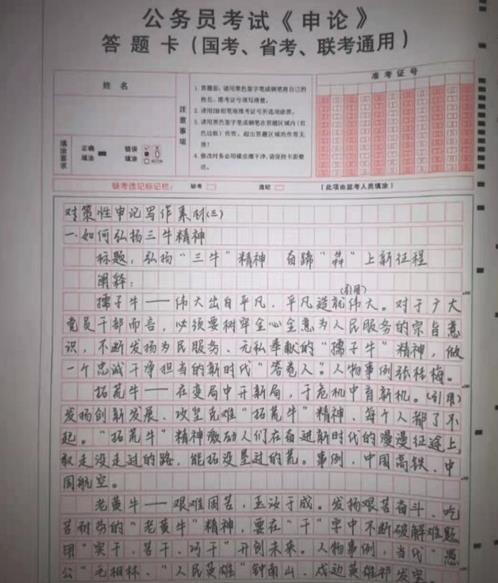 公务员考试《申论》
答题卡（国考、省考、联考通用）
姓名
准考证号
注意事项
填涂要求
正确填涂
错误填涂
缺考违记标记栏:
缺考
违纪
（此项由监考人员填涂）
对策性申论写作素材(三)
一.如何弘扬三牛精神
标题：弘扬“三牛”精神 奋蹄“犇”上新征程
阐释：
(引用)
孺子牛——伟大出自平凡，平凡造就伟大。对于广大
党员干部而言，必须要树牢全心全意为人民服务的宗旨意
识，不断发扬为民服务、无私奉献的“孺子牛”精神，做
一个忠诚干净担当的新时代“答卷人”。人物事例张桂梅。
拓荒牛——在变局中开新局，于危机中育新机。(引用)
发扬创新发展、攻坚克难“拓荒牛”精神，每个人都了不
起。“拓荒牛”精神激励人们在奋进新时代的漫漫征途上，
敢走没走过的路，能拓没垦过的荒。事例，中国高铁、中
国航空。
老黄牛——艰难困苦，玉汝于成。发扬艰苦奋斗、吃
苦耐劳的“老黄牛”精神，要在“干”字中不断破解难题
用“实干、苦干、巧干”开创未来。人物事例，当代“愚
公”毛相林、“人民英雄”钟南山、戍边英雄